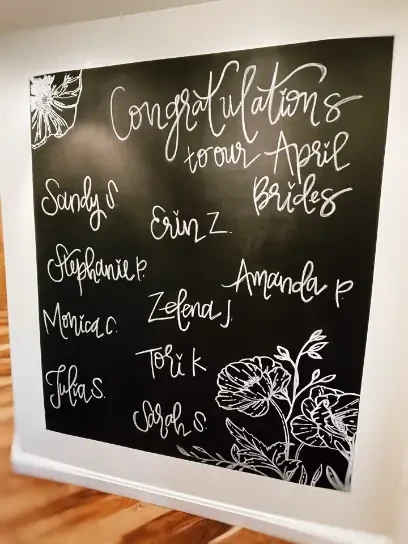 Congratulations
to our April
Brides
Sandy S.
Erin Z.
Stephanie P.
Amanda P.
Monica C.
Zelena J.
Tori K
Julia S.
Sarah S.